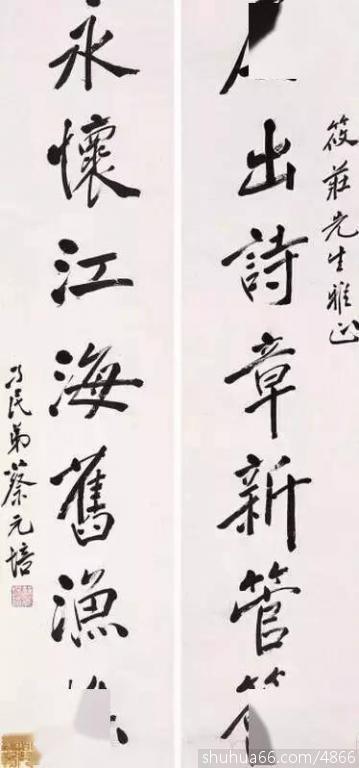 筱莊先生雅正
出詩章新管
永懷江海舊漁
孑民弟蔡元培
shuhua66.com/4866